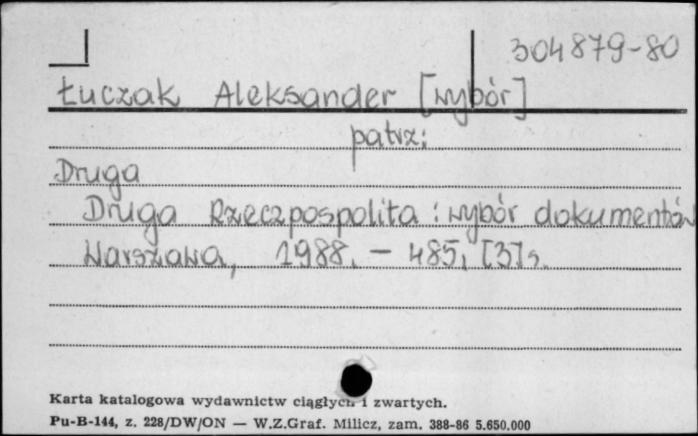 304879-80
Łuczak Aleksander [wybór]
patrz:
Druga
Druga Rzeczpospolita : wybór dokumentów
Warszawa, 1988. – 485, [3] s.
Karta katalogowa wydawnictw ciągłych i zwartych.
Pu-B-144, z. 228/DW/ON — W.Z.Graf. Milicz, zam. 388-86 5.650.000